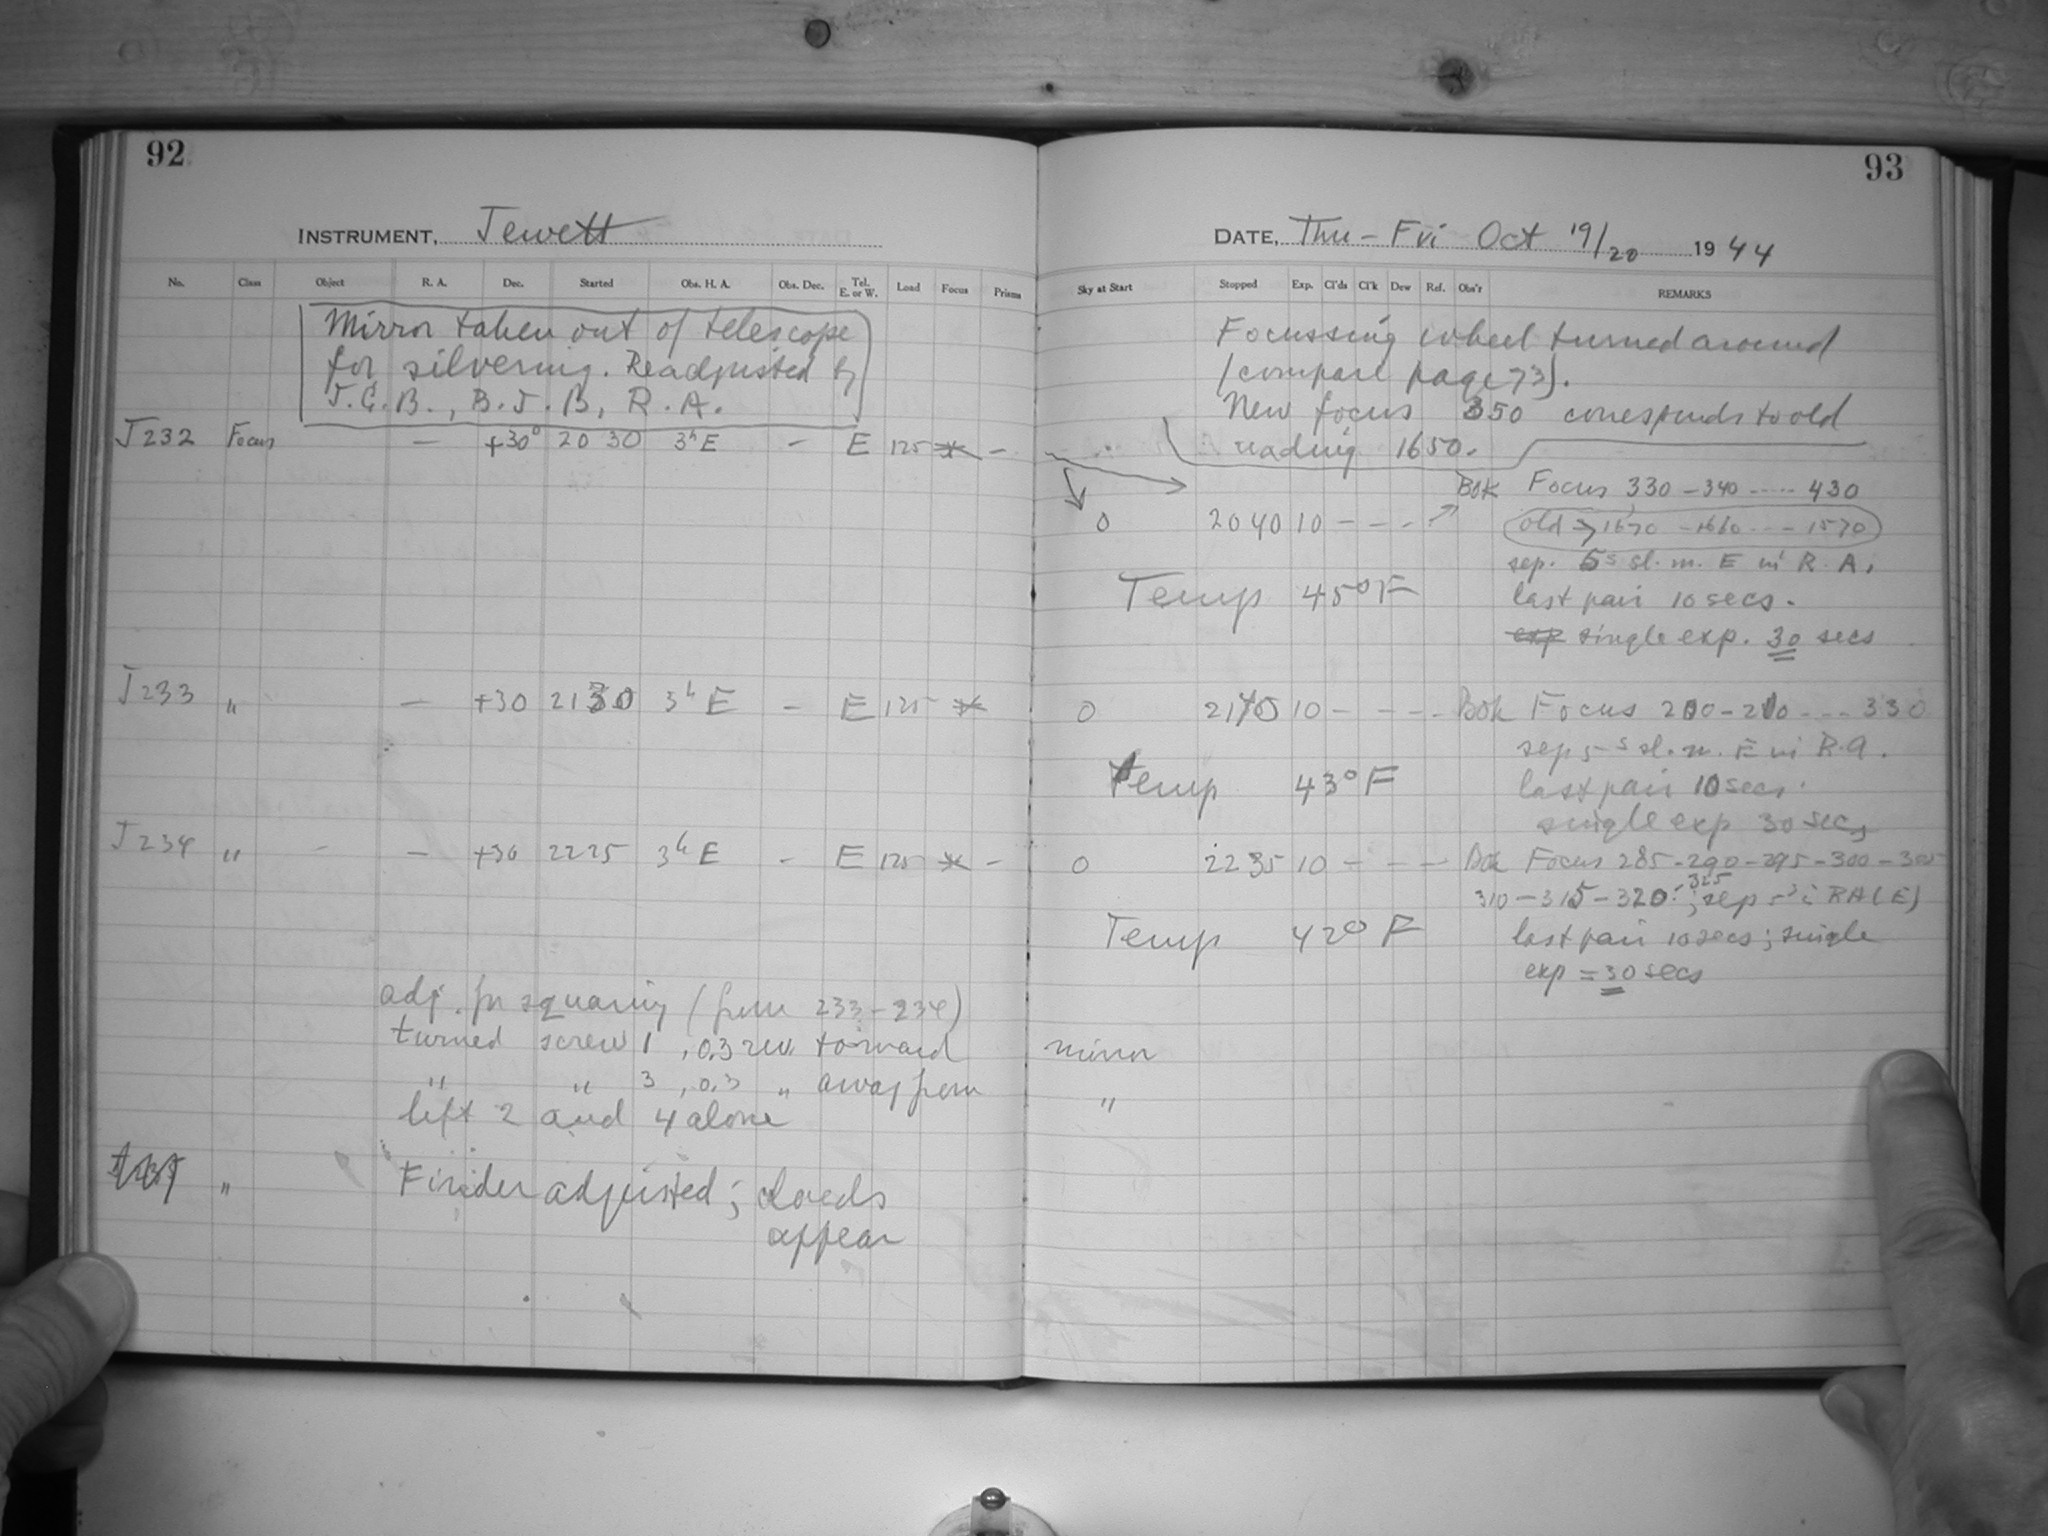 92
INSTRUMENT, Jewett
No. Class Object R. A. Dec. Started Obs. H. A. Obs. Dec. Tel. E. or W. Load Focus Prisms
Mirror taken out of telescope
for silvering. Readjusted by
J.G.B., B.J.B, R.A.
J232 Focus — +30° 20 30 3h E — E 125 —
J233 " — +30 2130 3h E — E 125
J234 " - — +30 2225 3h E - E 125 -
adj. for squaring (from 233-234)
turned screw 1, 0.3 rev. toward
" " 3, 0.3 " away from
left 2 and 4 alone
" Finder adjusted; clouds
appear
93
DATE, Thu - Fri Oct 19/20 1944
Sky at Start Stopped Exp. Cl'ds Cl'k Dew Ref. Obs'r REMARKS
Focussing wheel turned around
(compare page 73).
New focus 350 corresponds to old
reading 1650.
Bok Focus 330 - 340 ..... 430
0 2040 10 - - - old → 1670 - 1660 --- 1570
sep. 5s sl. m. E in R.A.
Temp 45° F last pair 10 secs.
exp single exp. 30 secs
0 2140 10 - - - - Bok Focus 200 - 210 --- 330
sep 5s sl. m. E in R.A.
Temp 43° F last pair 10 secs.
single exp 30 secs
0 2235 10 - - - Bok Focus 285 - 290 - 295 - 300 - 305
310 - 315 - 320 - 325; sep 5s in RA (E)
Temp 42° F last pair 10 secs; single
exp = 30 secs
mirror
"